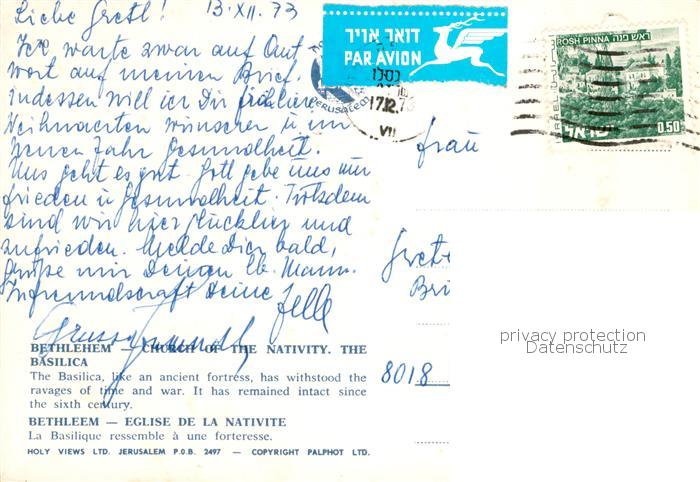 Liebe Gretl! 13.XII.73
Ich warte zwar auf Ant
wort auf meinen Brief.
indessen will ich Dir fröhliche
Weihnachten wünschen u im
Neuen Jahr Gesundheit.
Uns geht es gut. Gott gebe uns nur
Frieden u Gesundheit. Trotzdem
sind wir hier glücklich und
zufrieden. Melde Dich bald,
Grüße mir Deinen lb. Mann.
In Freundschaft Deine
דואר אויר
PAR AVION
JERUSALEM
17.12.73
VII
ROSH PINNA ראש פנה
ISRAEL
ישראל
0.50
Frau
8018
privacy protection
Datenschutz
BETHLEHEM — CHURCH OF THE NATIVITY. THE
BASILICA
The Basilica, like an ancient fortress, has withstood the
ravages of time and war. It has remained intact since
the sixth century.
BETHLEEM — EGLISE DE LA NATIVITE
La Basilique ressemble à une forteresse.
HOLY VIEWS LTD. JERUSALEM P.O.B. 2497 — COPYRIGHT PALPHOT LTD.